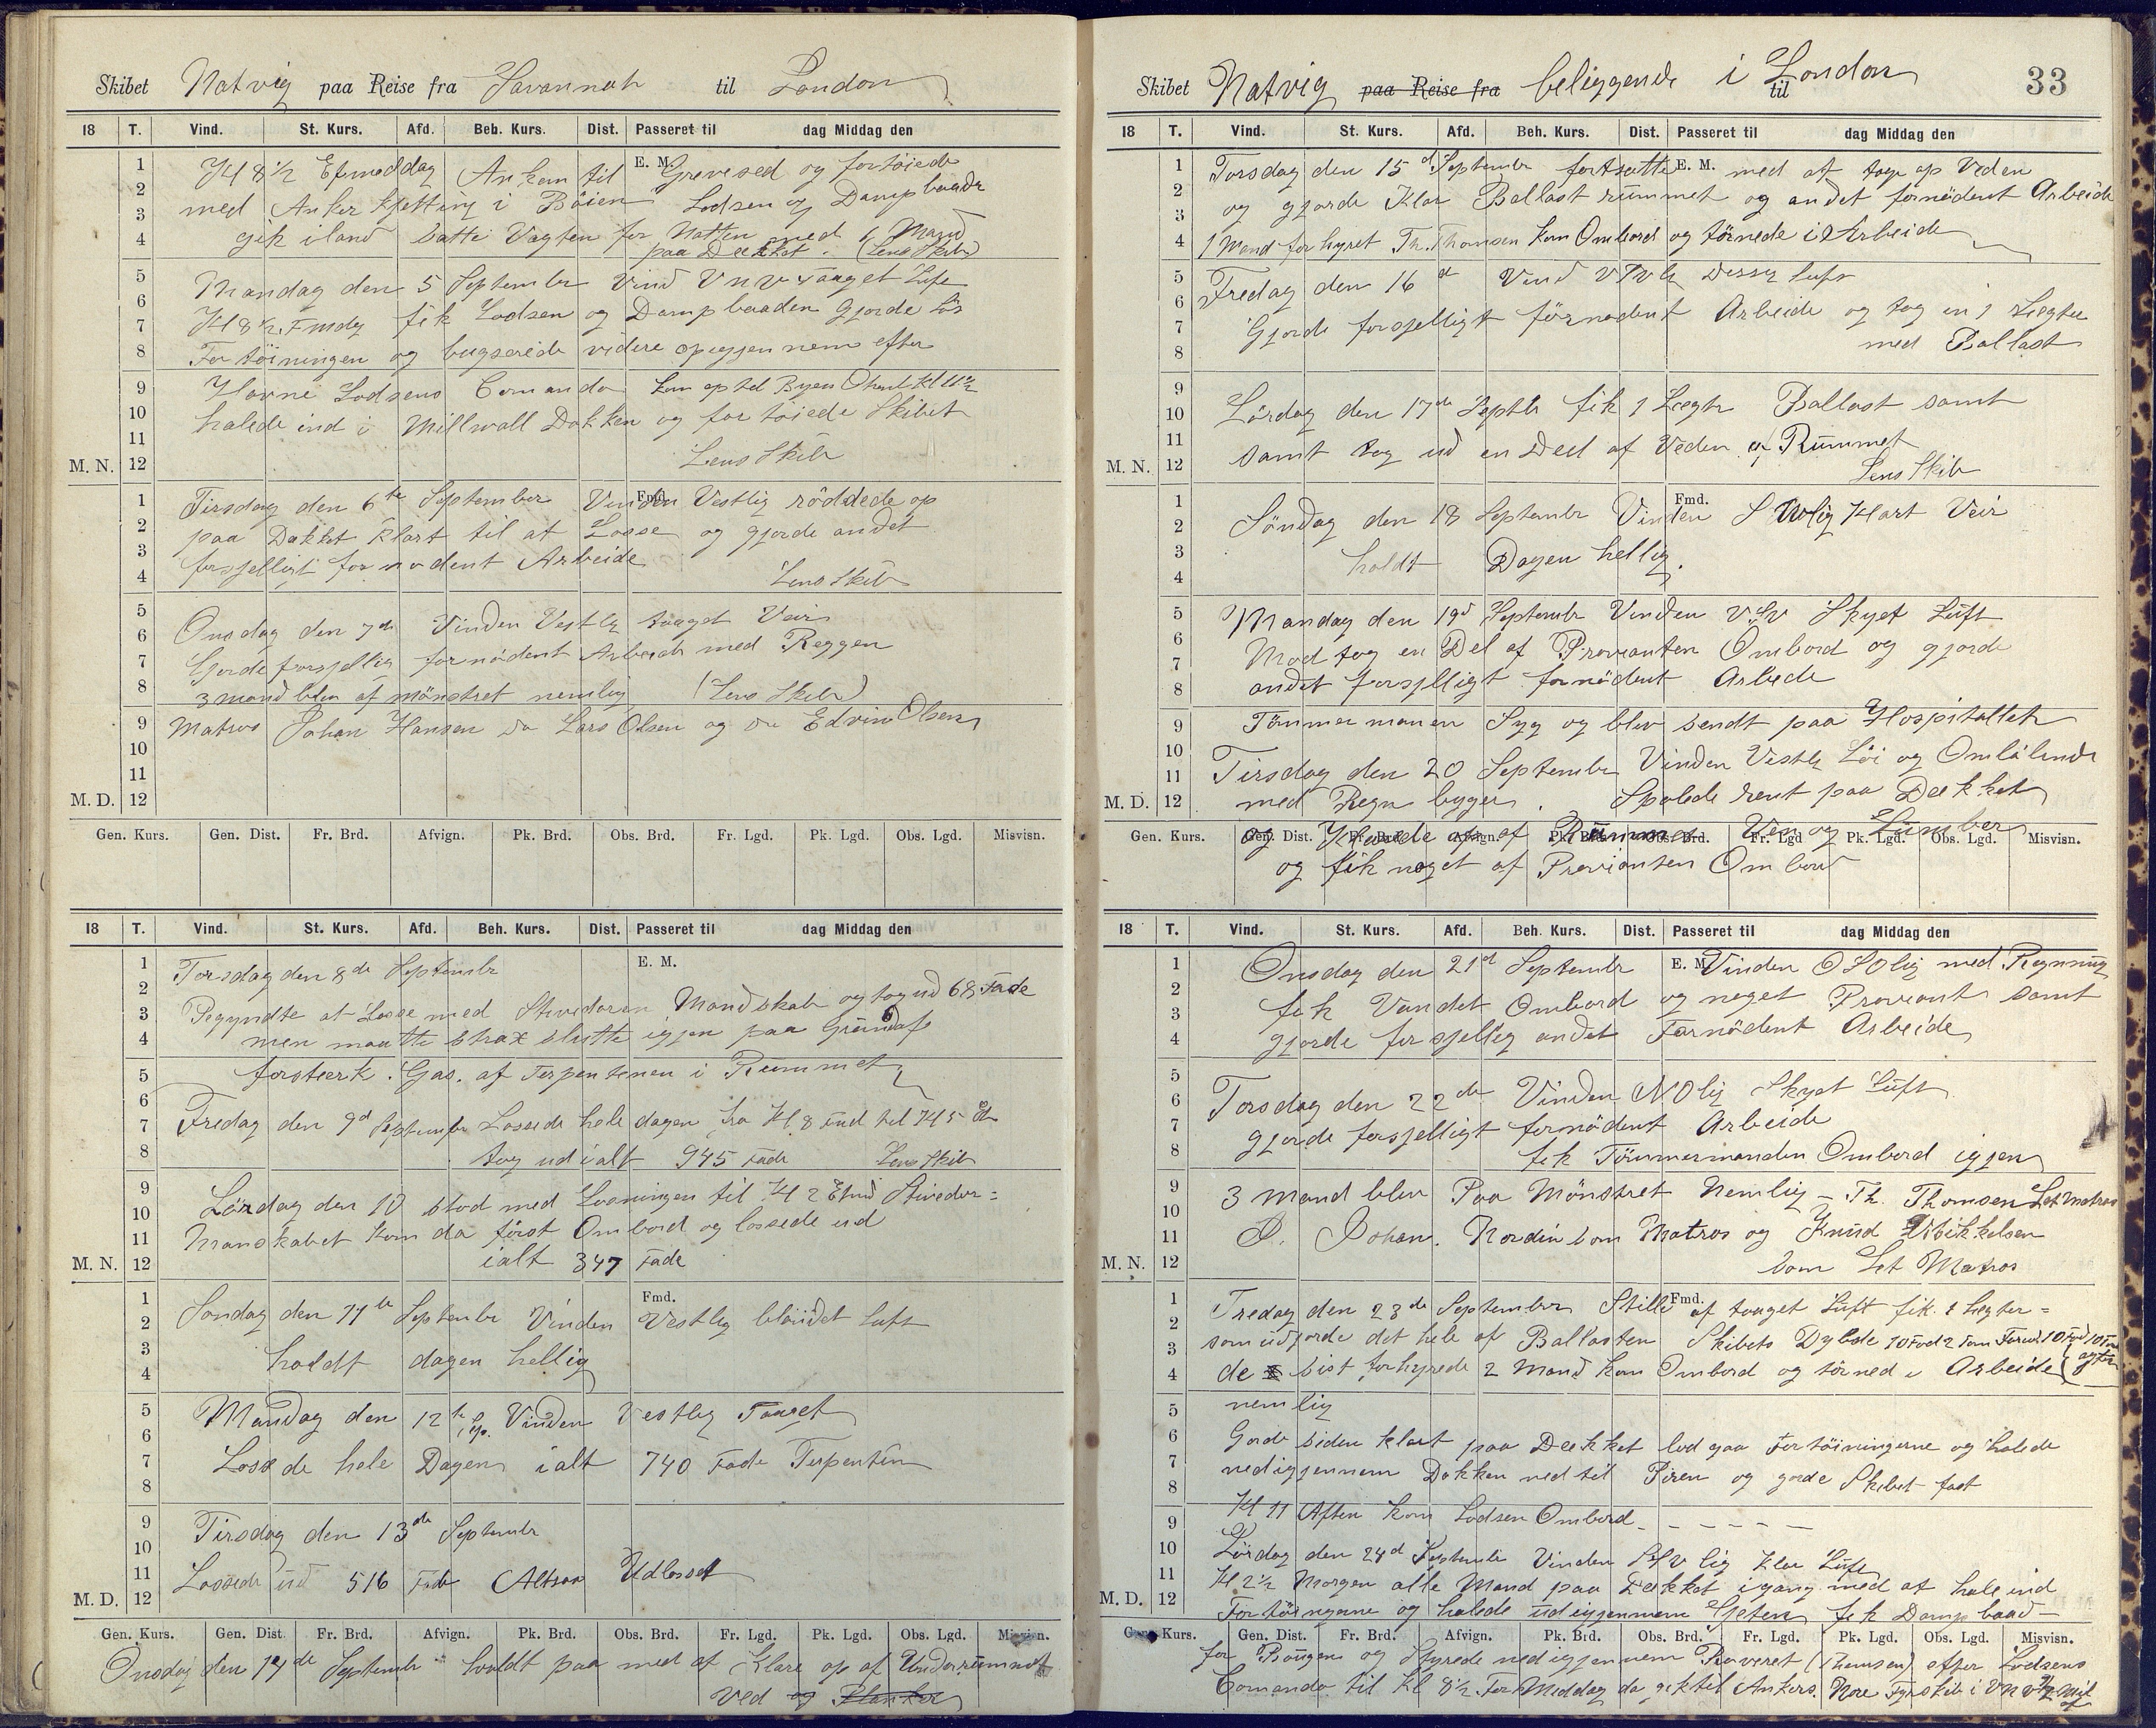 Skibet Natvig paa Reise fra Savannah til London
18 T. Vind. St. Kurs. Afd. Beh. Kurs. Dist. Passeret til dag Middag den
E. M.
Kl 8 1/2 Efmeddag Ankom til Grevesed og fortöiede
med Anker Kjetting i Böien Lodsen og Dampbaade
gik iland satte Vagten for Natten med 6 Mand
paa Dækket. (Lens Skib)
Mandag den 5 September Vind V n V taaget Luft
Kl 8 1/2 Fmdg fik Lodsen og Dampbaaden Gjorde Lös
Fortöiningen og bugserede videre opigjennem efter
Havne Lodsens Comando kom op til Byen Kl 11 1/2
halede ind i Millwall Dokken og fortöiede Skibet
Lens Skib
M. N.
Fmd.
Tirsdag den 6te September Vinden Vestlig röddede op
paa Dækket klart til at Losse og gjorde andet
forsjelligt fornödent Arbeide
Lens Skib
Onsdag den 7de Vinden Vestlg taaget Veir
Gjorde forsjellig fornödent Arbeide med Reggen
3 mand blev afmönstret nemlig (Lens Skib)
Matros Johan Hansen Do Lars Olsen og Do Edvin Olsen
M. D.
Gen. Kurs. Gen. Dist. Fr. Brd. Afvign. Pk. Brd. Obs. Brd. Fr. Lgd. Pk. Lgd. Obs. Lgd. Misvisn.
18 T. Vind. St. Kurs. Afd. Beh. Kurs. Dist. Passeret til dag Middag den
E. M.
Torsdag den 8de Septembr
Begyndte at Losse med Stivedoren Mandskab og tog ud 68 Fade
men maatte strax slutte igjen paa Grund af
forstærk Gas. af Terpentenen i Rummet
Fredag den 9d September Lossede hele dagen fra Kl 8 Fmd til Kl 5 E
tog ud ialt 945 Fade Lens Skib
Lördag den 10 stod med Losningen til Kl 2 Efmd Stivedor=
Manskabet kom da först Ombord og lossede ud
ialt 347 Fade
M. N.
Fmd.
Söndag den 11te Septembr Vinden Vestlig blandet Luft
holdt dagen hellig
Mandag den 12te Sep. Vinden Vestlig Taaget
Lossede hele Dagen ialt 740 Fade Terpentin
Tirsdag den 13de Septembr
Lossede ud 516 Fade Altsaa Udlosset
M. D.
Gen. Kurs. Gen. Dist. Fr. Brd. Afvign. Pk. Brd. Obs. Brd. Fr. Lgd. Pk. Lgd. Obs. Lgd. Misvisn.
Onsdag den 14de Septembr holdt paa med at Klare op af Underrummet
Ved og Planker
33
Skibet Natvig paa Reise fra beliggende i London til
18 T. Vind. St. Kurs. Afd. Beh. Kurs. Dist. Passeret til dag Middag den
E. M.
Torsdag den 15d Septembr fortsatte med at tage op Veden
og gjorde Klar Ballast rummet og andet fornödent Arbeide
1 Mand forhyret Th. Thomsen kom Ombord og törnede i Arbeide
Fredag den 16d Vind Vlg Luft
Gjorde forsjelligt förnödent Arbeide og tog in 1 Lægter
med Ballast
Lördag den 17de Septbr fik 1 Lægtr Ballast samt
samt tog ud en Deel af Veden af Rummet
Lens Skib
M. N.
Fmd.
Söndag den 18 Septembr Vinden S Vlig Klart Veir
holdt Dagen hellig.
Mandag den 19d Septembr Vinden V S V Skyet Luft
Modtog en Del af Provianten Ombord og gjorde
andet forsjelligt fornödent Arbeide
Tömmermanen Syg og blev sendt paa Hospitallet
Tirsdag den 20 Septembr Vinden Vestlg Löi og Omlöbende
med Regn byger. Spolede rent paa Dækket
M. D.
og Klarede op af Rummet Ven og Lumber
Gen. Kurs. Gen. Dist. Fr. Brd. Afvign. Pk. Brd. Obs. Brd. Fr. Lgd Pk. Lgd. Obs. Lgd. Misvisn.
og fik noget af Provianten Ombord
18 T. Vind. St. Kurs. Afd. Beh. Kurs. Dist. Passeret til dag Middag den
E. M.
Onsdag den 21d Septembr Vinden O S Olig med Regning
fik Vandet Ombord og noget Proviant samt
gjorde forsjellig andet Fornödent Arbeide
Torsdag den 22de Vinden N Olig Skyet Luft
gjorde forsjelligt fornödent Arbeide
fik Tömmermanden Ombord igjen
3 mand blev Paa Mönstret Nemlig – Th. Thomsen Let Matros
Johan. Nordin som Matros og Knud Mikkelsen
som Let Matros
M. N.
Fmd.
Fredag den 23de September Stille af taaget Luft fik 1 Lægter=
som udgjorde det hele af Ballasten Skibets Dybde 10 Fod 2 Tom Forud 10 Fod 10 Tom agter
de sist forhyrede 2 Mand kom Ombord og törned i Arbeide
nemlig
Gorde siden klart paa Dækket lod gaa Fortöiningerne og halede
nedigjennem Dokken ned til Piren og gorde Skibet fast
Kl 11 Aften kom Lodsen Ombord
Lördag den 24d Septembr Vinden S V lig Klar Luft
Kl 2 1/2 Morgen alle Mand paa Dækket igang med at hale ind
M. D.
Fortöingerne og halede udigjennem Gjeten fik Dampbaad
Gen. Kurs. Gen. Dist. Fr. Brd. Afvign. Pk. Brd. Obs. Brd. Fr. Lgd. Pk. Lgd. Obs. Lgd. Misvisn.
for Bougen og Styrede nedigjennem Reveret (Themsen) efter Lodsens
Comando til Kl 8 1/2 ForMiddag da gik til Ankers. Nore Fyrskib i V N V 1/2 Mil af